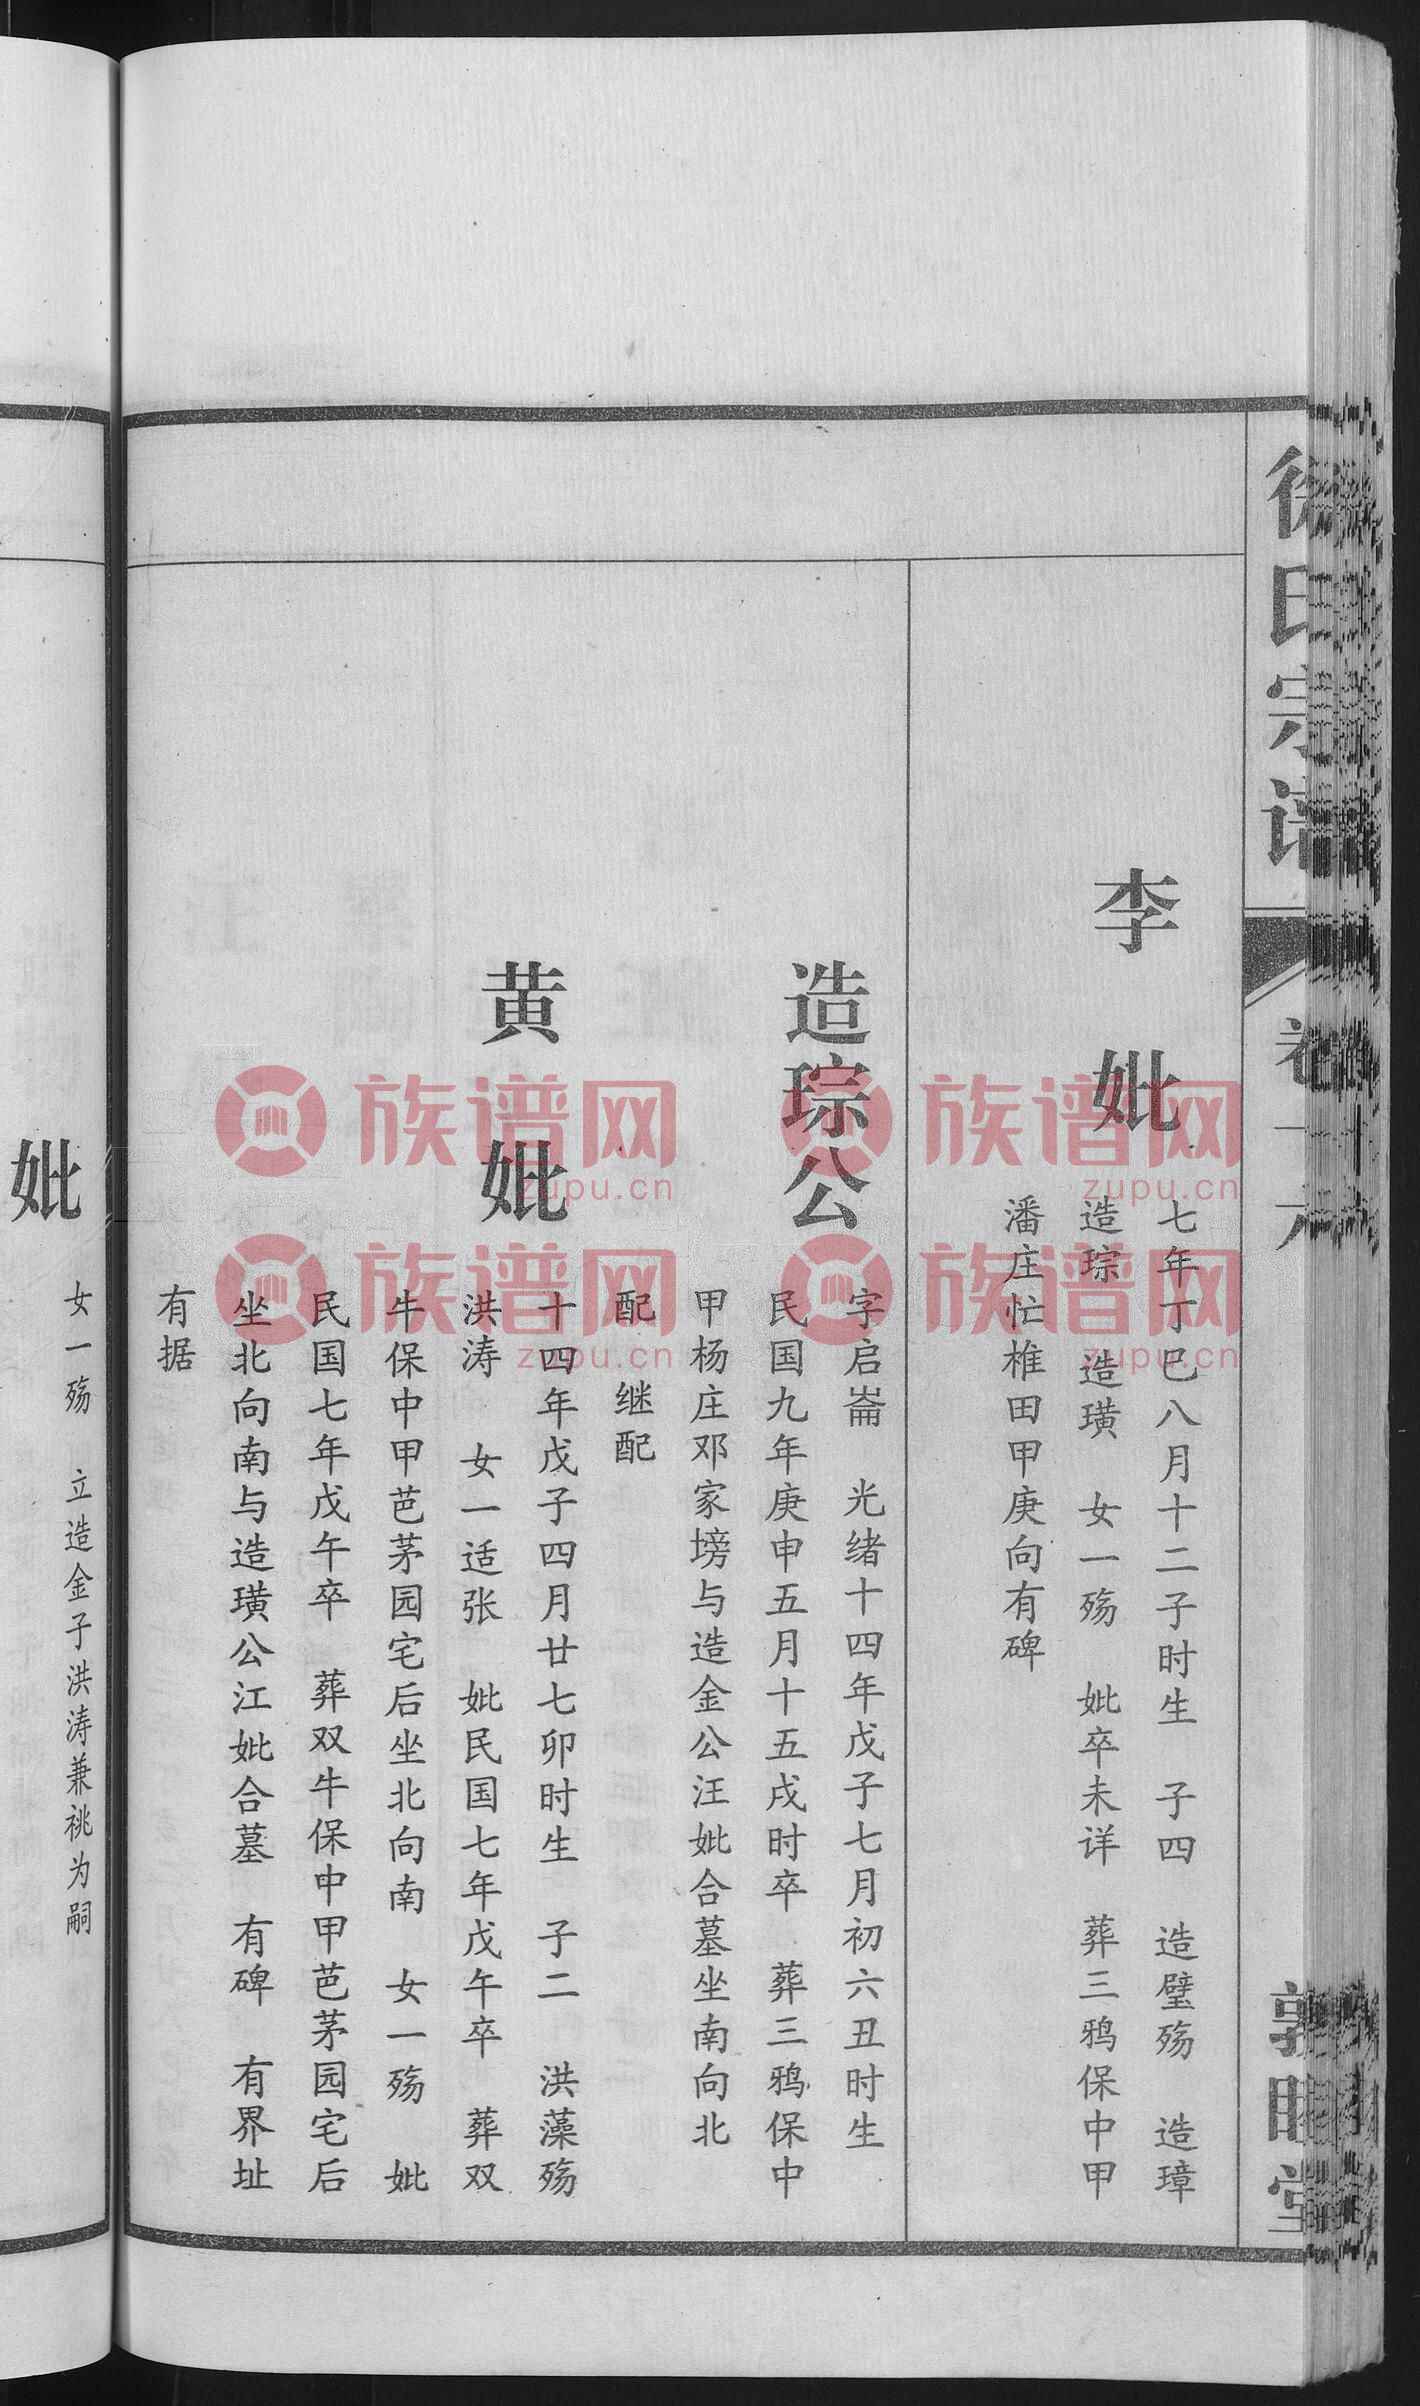 徐氏宗谱
卷十六
敦睦堂
李妣
七年丁巳八月十二子时生 子四 造璧殇 造璋
造琮 造璜 女一殇 妣卒未详 葬三鸦保中甲
潘庄忙椎田甲庚向有碑
造琮公
字启崙 光绪十四年戊子七月初六丑时生
民国九年庚申五月十五戌时卒 葬三鸦保中
甲杨庄邓家塝与造金公汪妣合墓坐南向北
配 继配
黄妣
十四年戊子四月廿七卯时生 子二 洪藻殇
洪涛 女一适张 妣民国七年戊午卒 葬双
牛保中甲芭茅园宅后坐北向南 女一殇 妣
民国七年戊午卒 葬双牛保中甲芭茅园宅后
坐北向南与造璜公江妣合墓 有碑 有界址
有据
妣
女一殇 立造金子洪涛兼祧为嗣
族谱网
zupu.cn
族谱网
zupu.cn
族谱网
zupu.cn
族谱网
zupu.cn